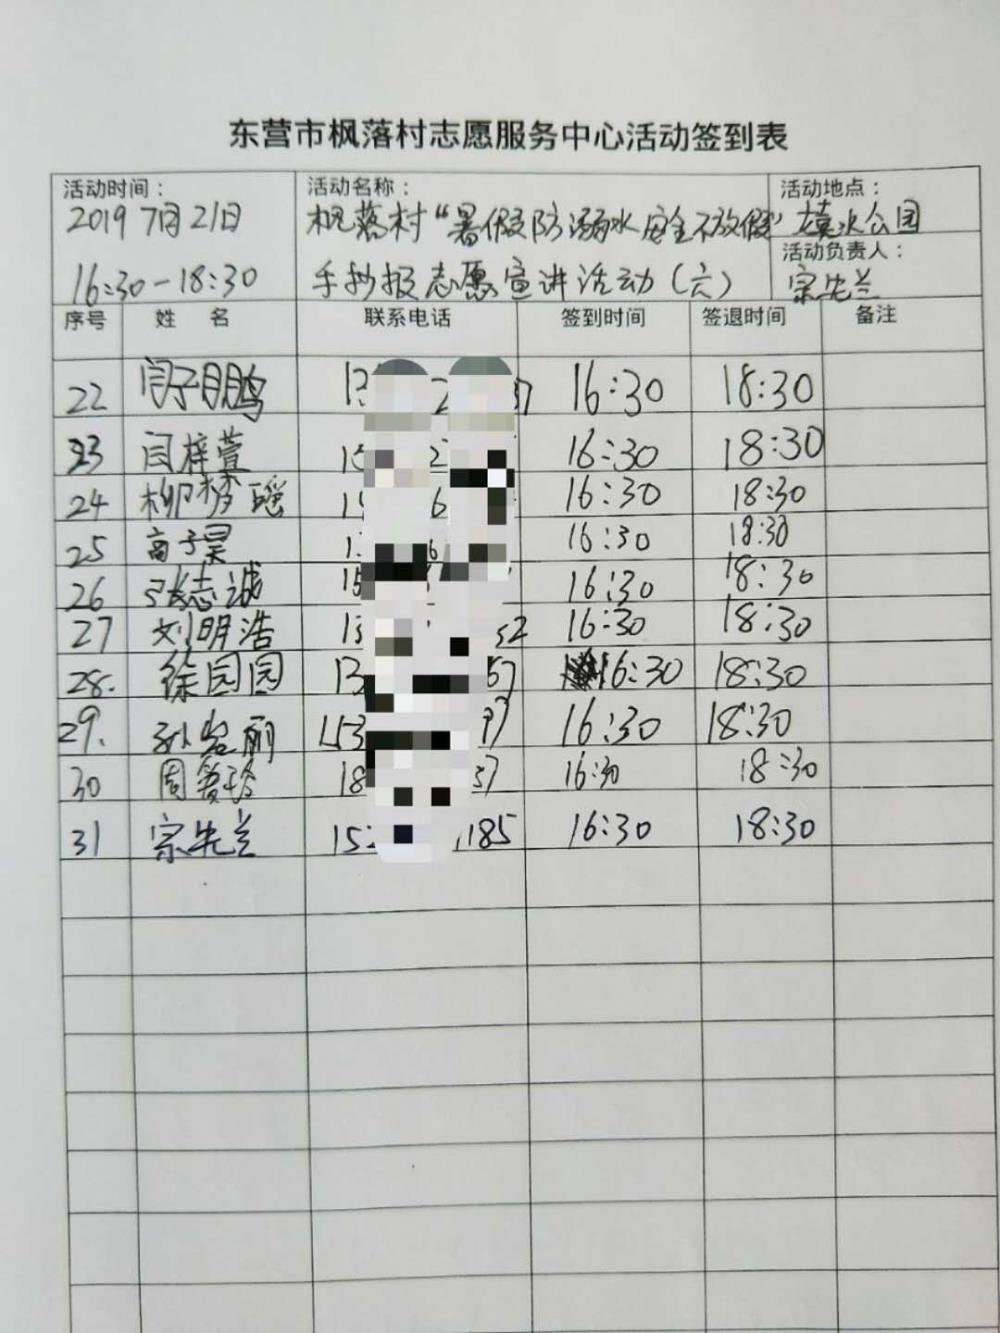 东营市枫落村志愿服务中心活动签到表
活动时间： 活动名称： 活动地点：
2019 7月21日 枫落村“暑假防溺水 安全不放假” 公园
活动负责人：
16:30-18:30 手抄报志愿宣讲活动（六） 宗先兰
序号 姓 名 联系电话 签到时间 签退时间 备注
22 闫子鹏 13 2 37 16:30 18:30
23 闫梓萱 15 2 16:30 18:30
24 柳梦瑶 1 6 16:30 18:30
25 高子昊 1 6 16:30 18:30
26 张志诚 15 16:30 18:30
27 刘明浩 13 52 16:30 18:30
28. 徐园园 13 67 16:30 18:30
29. 孙 丽 153 97 16:30 18:30
30 周 玲 18 57 16:30 18:30
31 宗先兰 152 1185 16:30 18:30